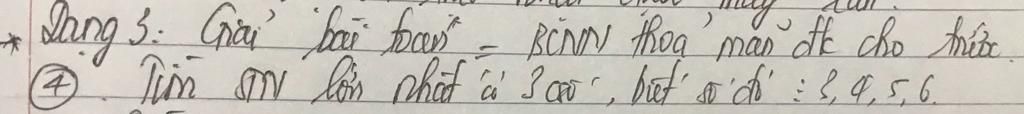 * Dạng 3: Giải bài toán = BCNN thỏa mãn đk cho trước.
④ Tìm STN lớn nhất có 3 cs, biết số đó : 3, 4, 5, 6.